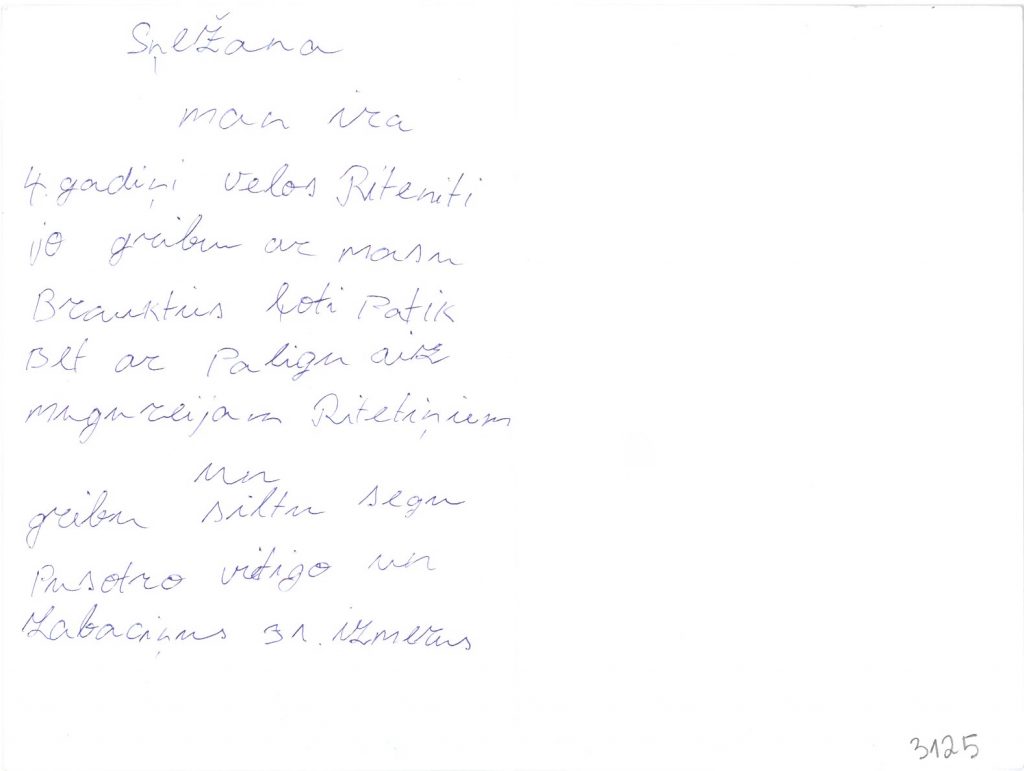 Sņežana
man ira
4. gadiņi velos Riteniti
jo gribu ar masu
Brauktus ļoti Patik
Bet ar Paligu aiz
mugureijam Ritetiņiem
un
gribu siltu segu
Pusotro vitigo un
Zabaciņus 31. izmerus
3125